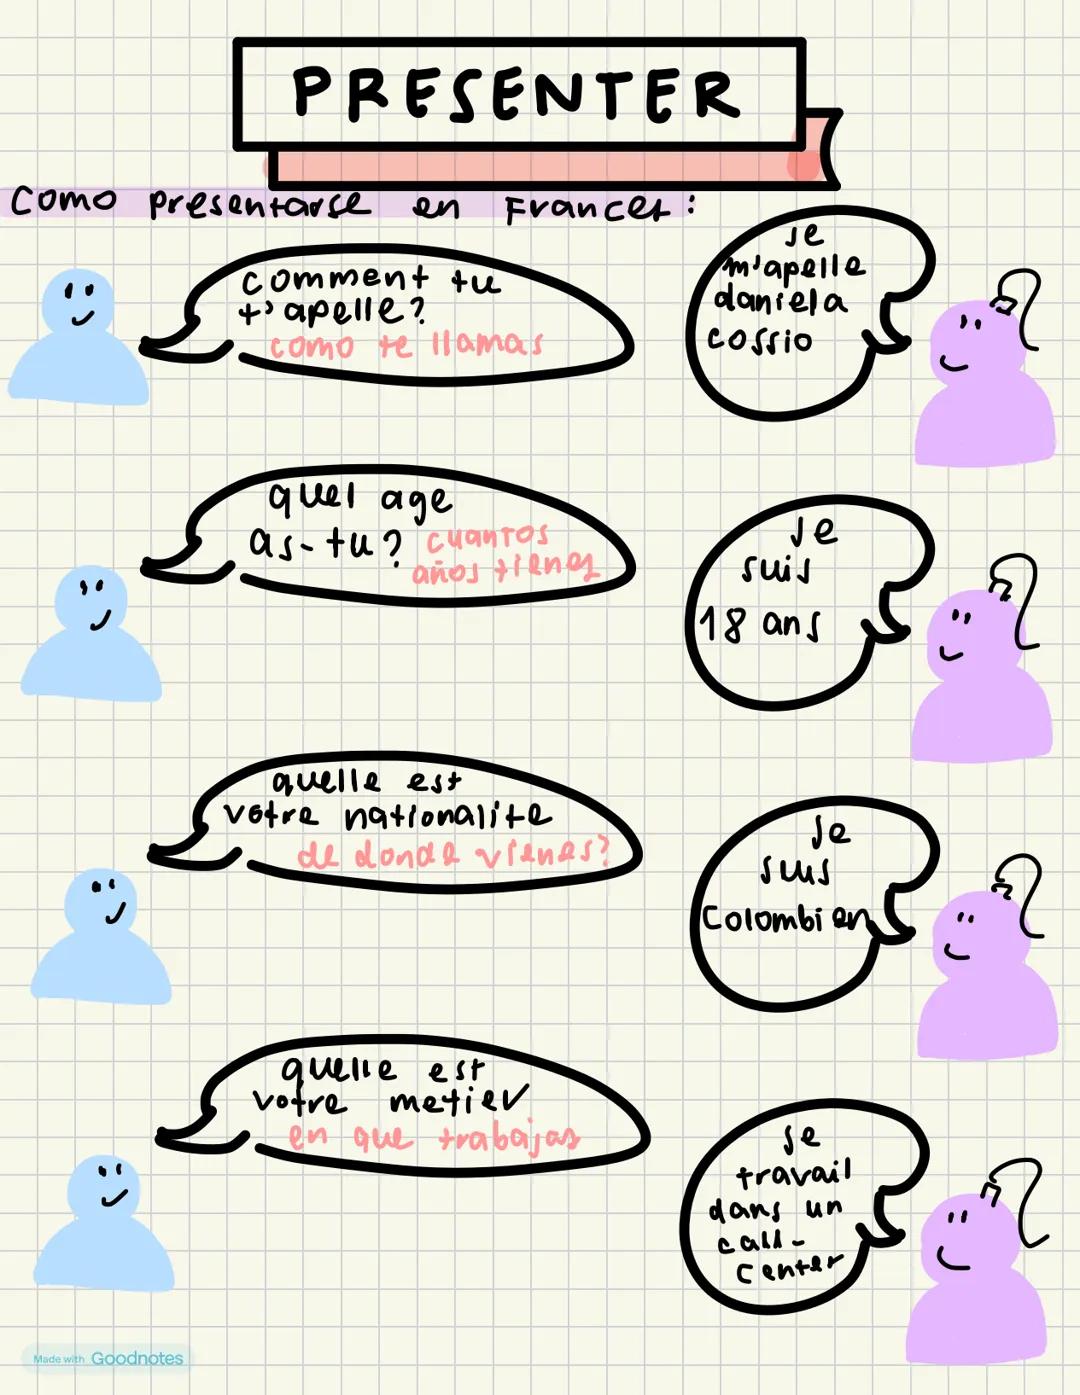 PRESENTER
Como presentarse en Frances:
comment tu
t'apelle?
como te llamas
Je
m'apelle
daniela
cossio
quel age
as-tu? cuantos
años tienes
Je
suis
18 ans
quelle est
votre nationalite
de donde vienes?
Je
suis
Colombien
quelle est
votre metier
en que trabajas
Je
travail
dans un
call-
center
Made with Goodnotes